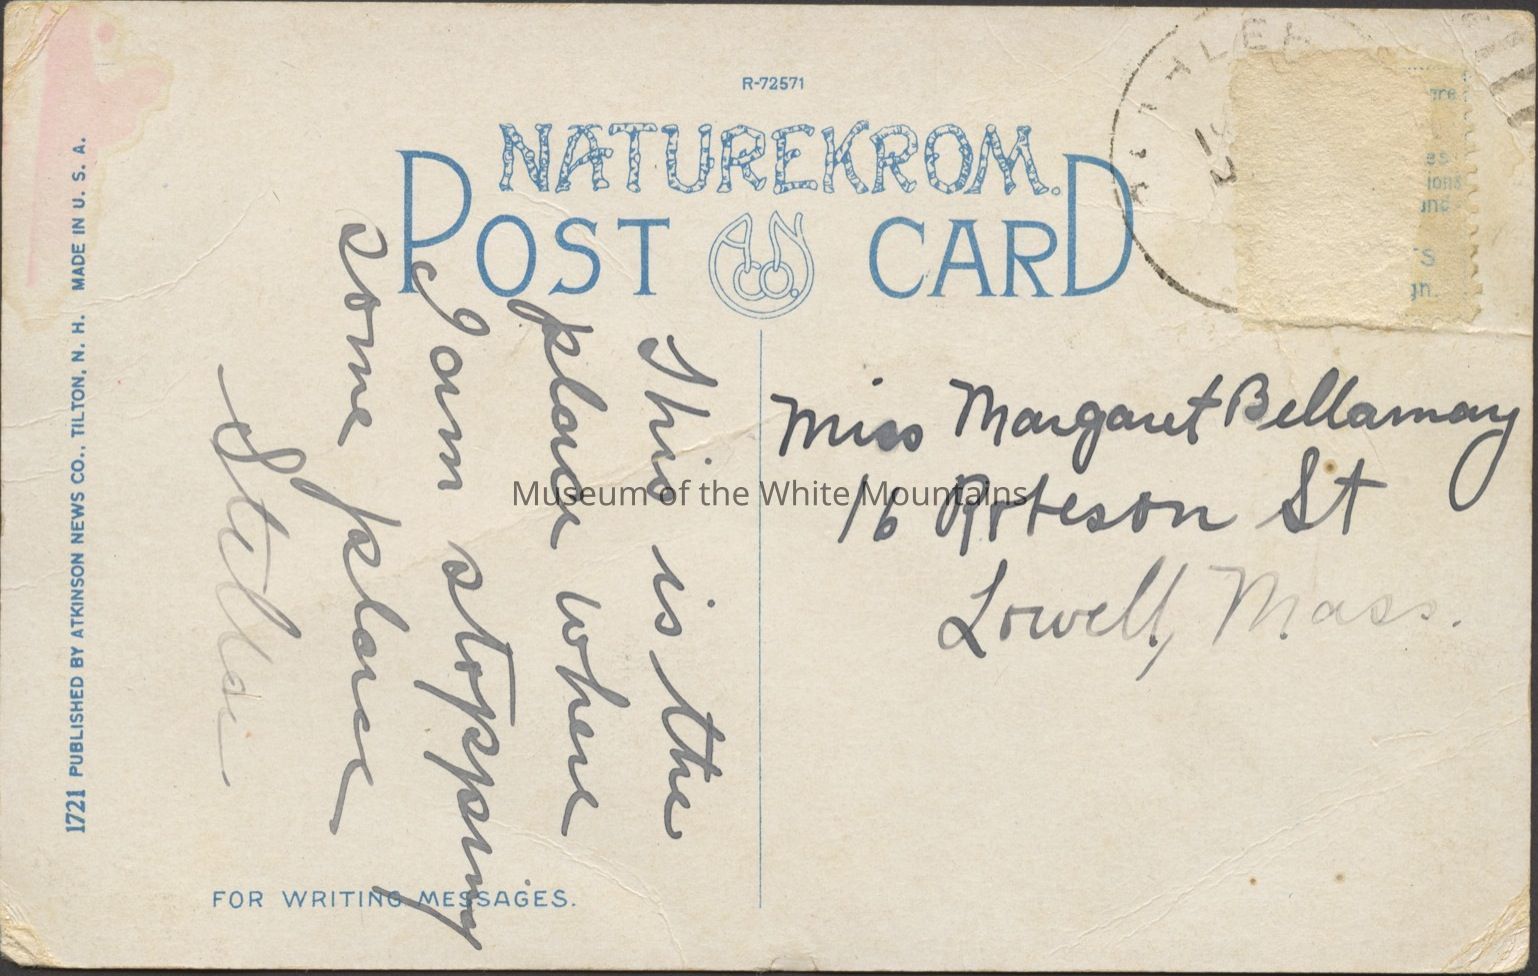 R-72571
NATUREKROM.
POST CARD
A N Co.
This is the
place where
I am stopping
some place
Stella
Miss Margaret Bellamay
16 Roteson St
Lowell, Mass.
Museum of the White Mountains
FOR WRITING MESSAGES.
1721 PUBLISHED BY ATKINSON NEWS CO., TILTON, N. H. MADE IN U. S. A.